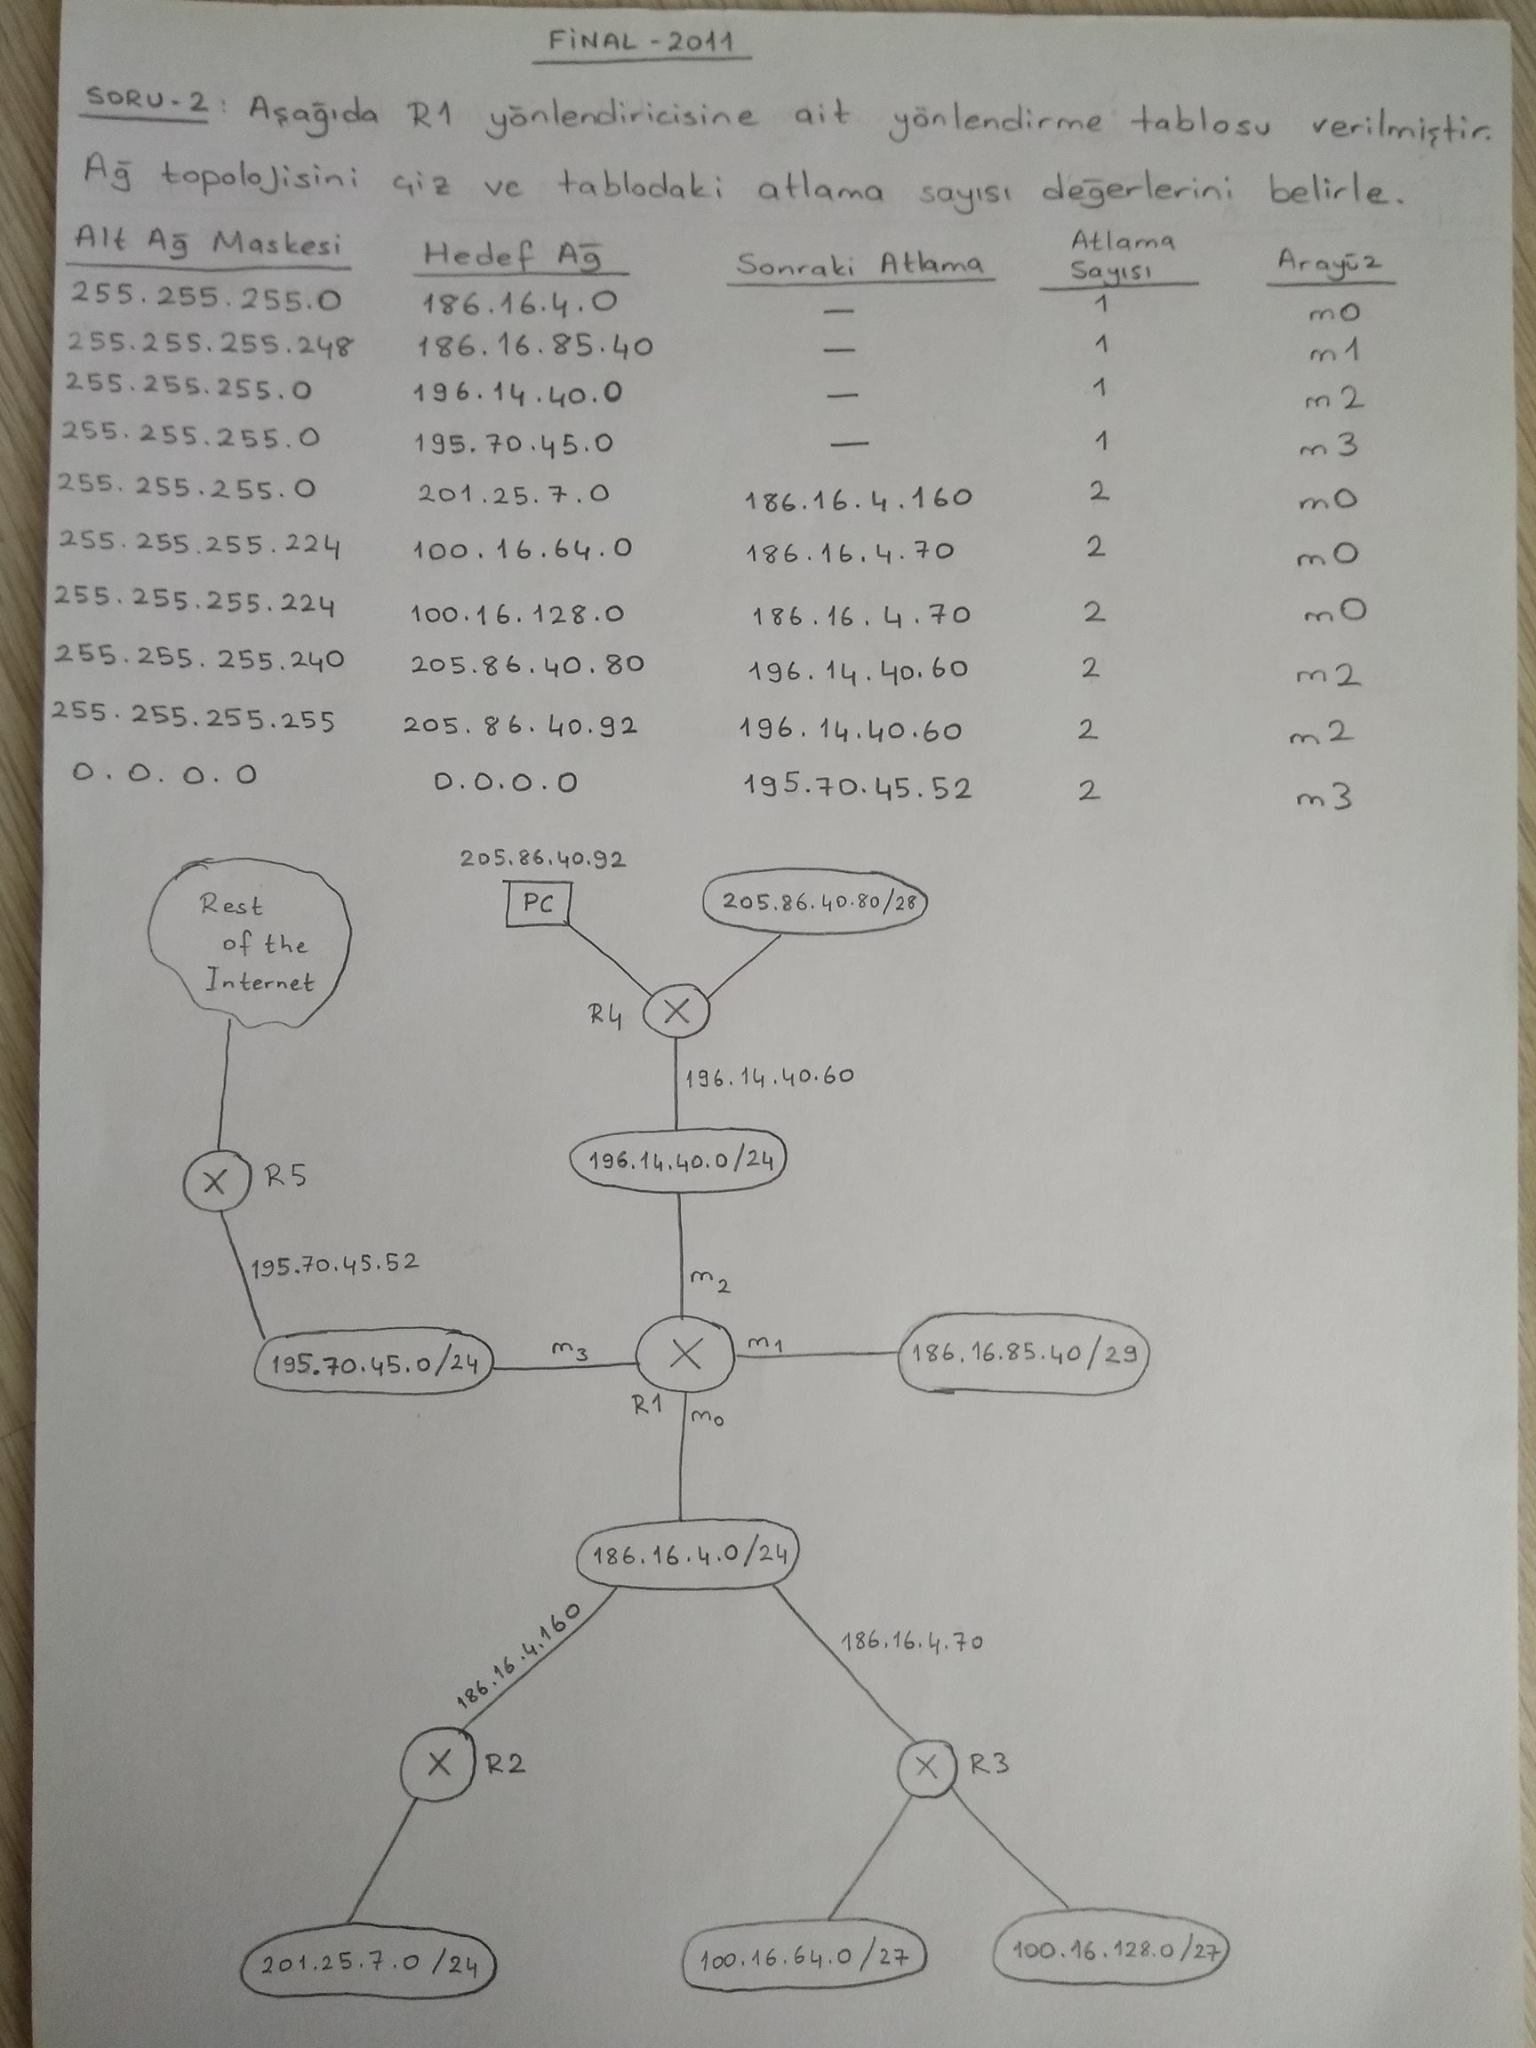 FİNAL - 2011
SORU-2: Aşağıda R1 yönlendiricisine ait yönlendirme tablosu verilmiştir.
Ağ topolojisini çiz ve tablodaki atlama sayısı değerlerini belirle.
Alt Ağ Maskesi Hedef Ağ Sonraki Atlama Atlama Sayısı Arayüz
255.255.255.0 186.16.4.0 — 1 m0
255.255.255.248 186.16.85.40 — 1 m1
255.255.255.0 196.14.40.0 — 1 m2
255.255.255.0 195.70.45.0 — 1 m3
255.255.255.0 201.25.7.0 186.16.4.160 2 m0
255.255.255.224 100.16.64.0 186.16.4.70 2 m0
255.255.255.224 100.16.128.0 186.16.4.70 2 m0
255.255.255.240 205.86.40.80 196.14.40.60 2 m2
255.255.255.255 205.86.40.92 196.14.40.60 2 m2
0.0.0.0 0.0.0.0 195.70.45.52 2 m3
205.86.40.92
Rest
of the
Internet
PC
205.86.40.80/28
R4
196.14.40.60
196.14.40.0/24
R5
195.70.45.52
m2
195.70.45.0/24
m3
m1
186.16.85.40/29
R1
m0
186.16.4.0/24
186.16.4.160
186.16.4.70
R2
R3
201.25.7.0/24
100.16.64.0/27
100.16.128.0/27